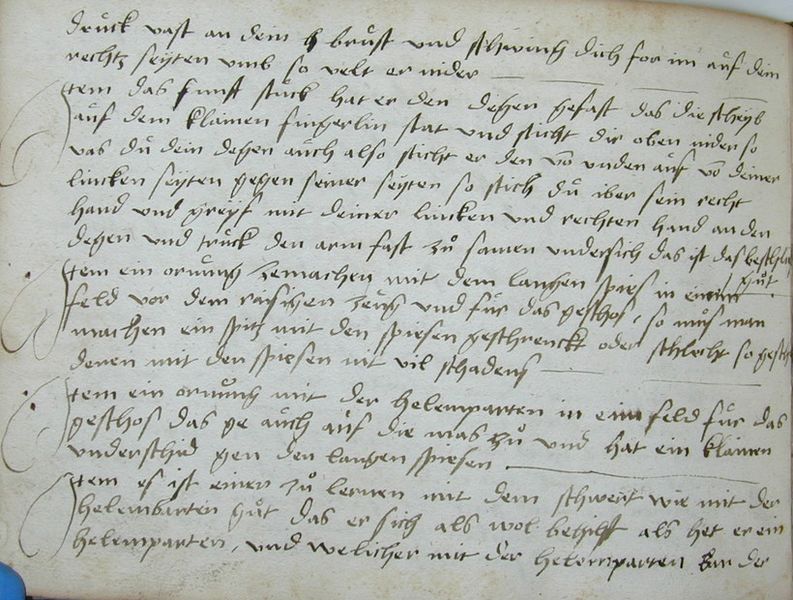 druck vast an dein h brust und schwing dich for im auf dein
rechtz seyten umb so velt er nider
Item das funft stuck hat er den degen gefast das die scheyb
auf dem klainen fingerlin stat und sticht dir oben nider so
vas du dein degen auch also sticht er den vo unden auf vo deiner
lincken seyten gegen seiner seyten so stich du iber sein recht
hand und greyf mit deiner lincken und rechten hand an den
degen und truck den arm fast zu samen undersich das ist das
gut
Item ein ornung zemachen mit dem langen spies in einem
feld vor dem raisigen zeug und fur das geschos, so mus man
machen ein spitz mit den spiesen geschrenckt oder schlecht so
denen mit den spiesen nit vil schadens
Item ein ornung mit der helemparten in eim feld fur das
geschos das ge auch auf die mas zu und hat ein klainen
underschid gen den langen spiesen
Item es ist einer zu lernen mit dem schwert wie mit der
helembarten gut das er sich als wol behilft als het er ein
helemparten, und welicher mit der helemparten der